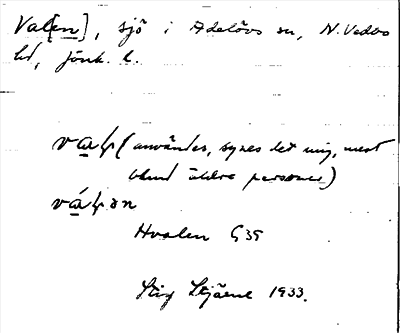 Val[en], sjö i Adelövs sn, N. Vedbo
hd, Jönk. l.
val (användes, synes det mig, mest
bland äldre personer)
válən
Hvalen G39
Stig Stjärne 1933.